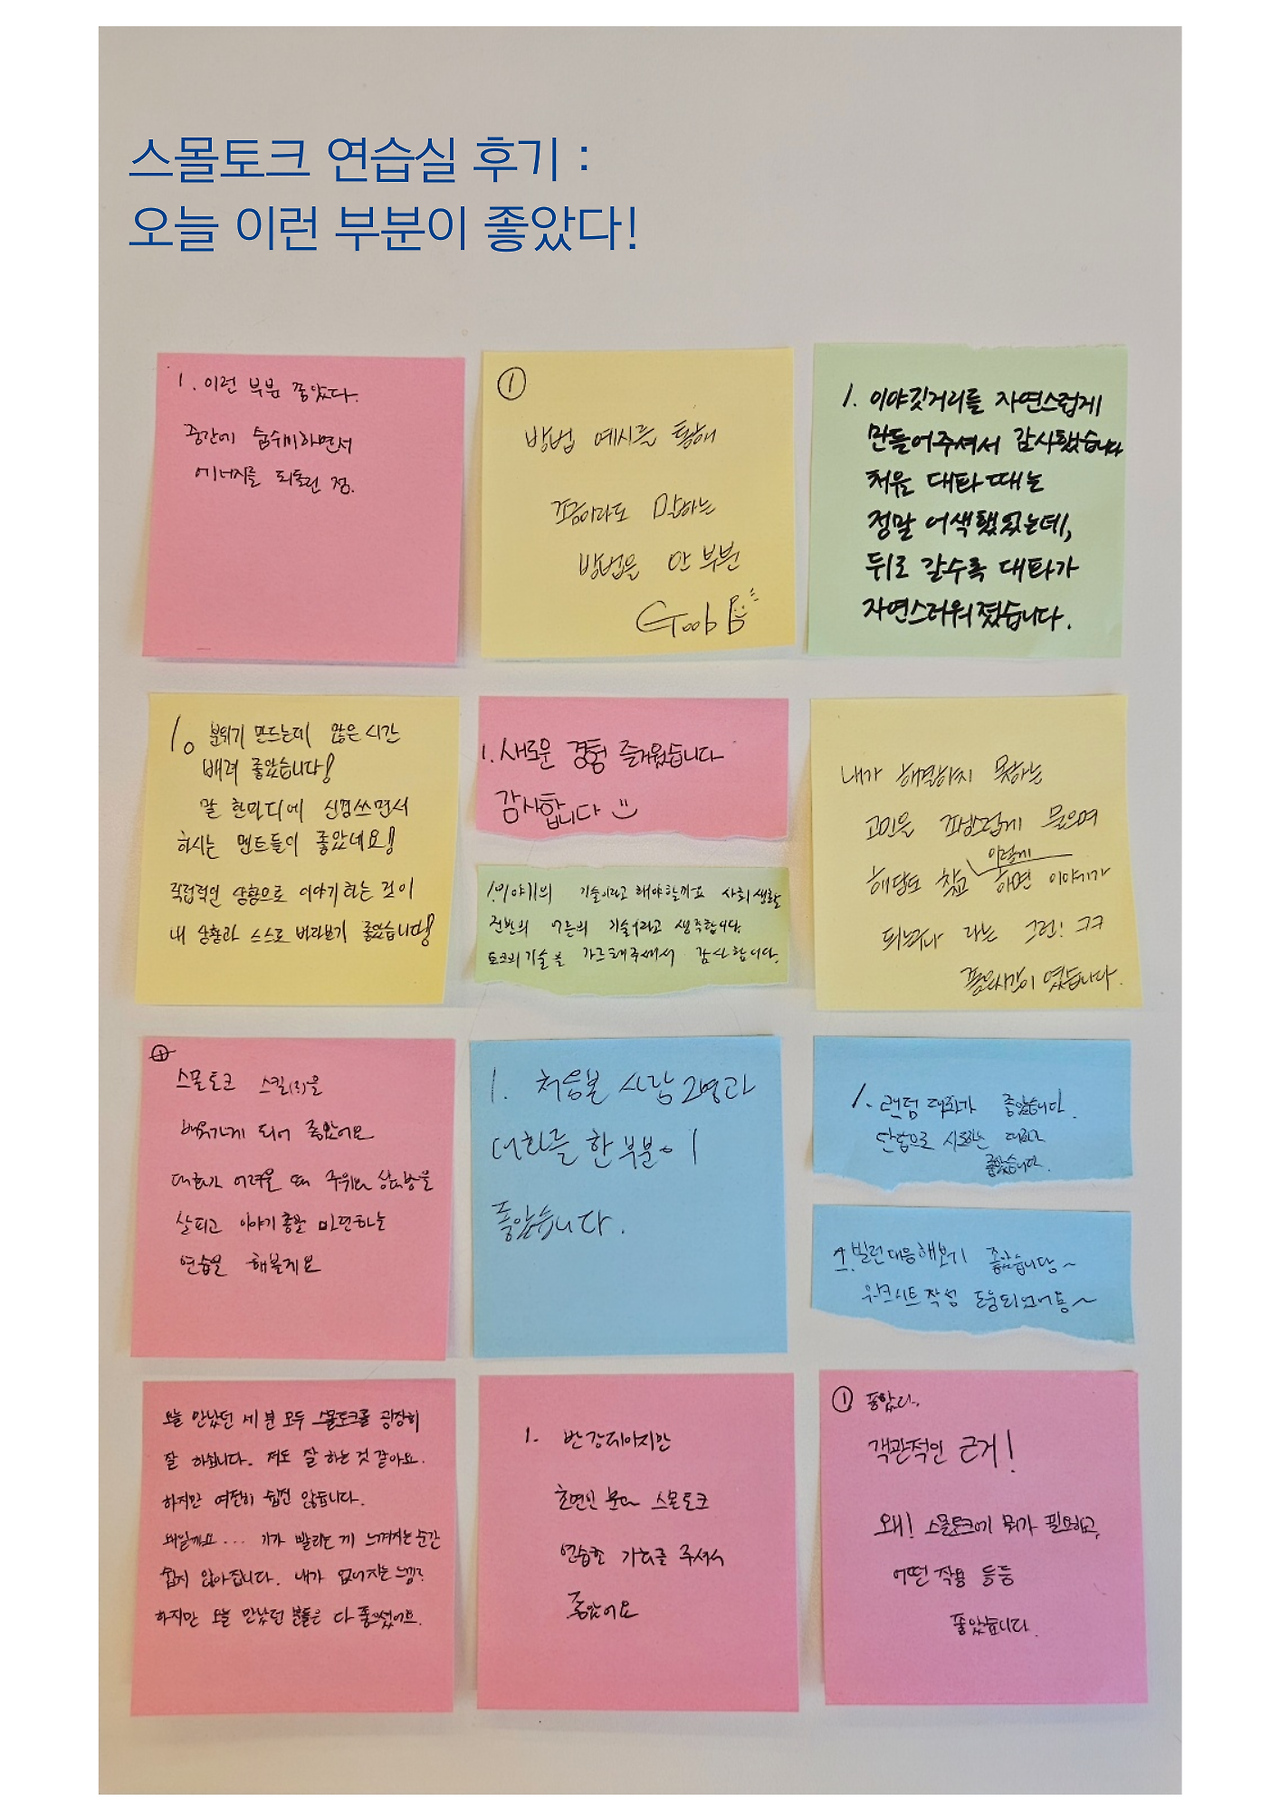 스몰토크 연습실 후기 :
오늘 이런 부분이 좋았다!
1. 이런 부분 좋았다.
중간에 숨쉬기하면서
에너지를 되돌린 점.
①
방법 예시를 통해
조금이라도 말하는
방법을 안 부분
Good
1. 이야깃거리를 자연스럽게
만들어주셔서 감사했습니다
처음 대화 때는
정말 어색했었는데,
뒤로 갈수록 대화가
자연스러워졌습니다.
1. 분위기 만드는데 많은 시간
배려 좋았습니다!
말 한마디에 신경쓰면서
하시는 멘트들이 좋았네요!
직접적인 상황으로 이야기 하는 것이
내 상황과 스스로 바라보기 좋았습니다!
1. 새로운 경험 즐거웠습니다
감사합니다
1. 이야기의 기술이라고 해야할까요 사회생활
전반의 어른의 기술이라고 생각합니다
토크의 기술을 가르쳐주셔서 감사합니다.
내가 해결하지 못하는
고민을 자연스럽게 물으며
해답도 찾고 이렇게 하면 이야기가
되는구나 라는 그런! ㅋㅋ
좋은시간이 였습니다.
①
스몰토크 스킬(?)을
배워가게 되어 좋았어요
대화가 어려울 때 주위와 상대방을
살피고 이야기 종을 마련하는
연습을 해볼게요
1. 처음본 사람 2명과
대화를 한 부분이
좋았습니다.
1. 랜덤 대화가 좋았습니다.
단답으로 시작하는 대화
좋았습니다.
1. 빌런대응해보기 좋았습니당~
워크시트 작성 도움되었어용~
오늘 만났던 세 분 모두 스몰토크를 굉장히
잘 하십니다. 저도 잘 하는 것 같아요.
하지만 여전히 쉽진 않습니다.
왜일까요... 기가 빨리는 게 느껴지는 순간
쉽지 않아집니다. 내가 없어지는 느낌?
하지만 오늘 만났던 분들은 다 좋으셨어요.
1. 반 강제이지만
초면인 분과 스몰토크
연습한 기회를 주셔서
좋았어요
① 좋았다.
객관적인 근거!
왜! 스몰토크에 뭐가 필요하고,
어떤 작용 등등
좋았습니다.